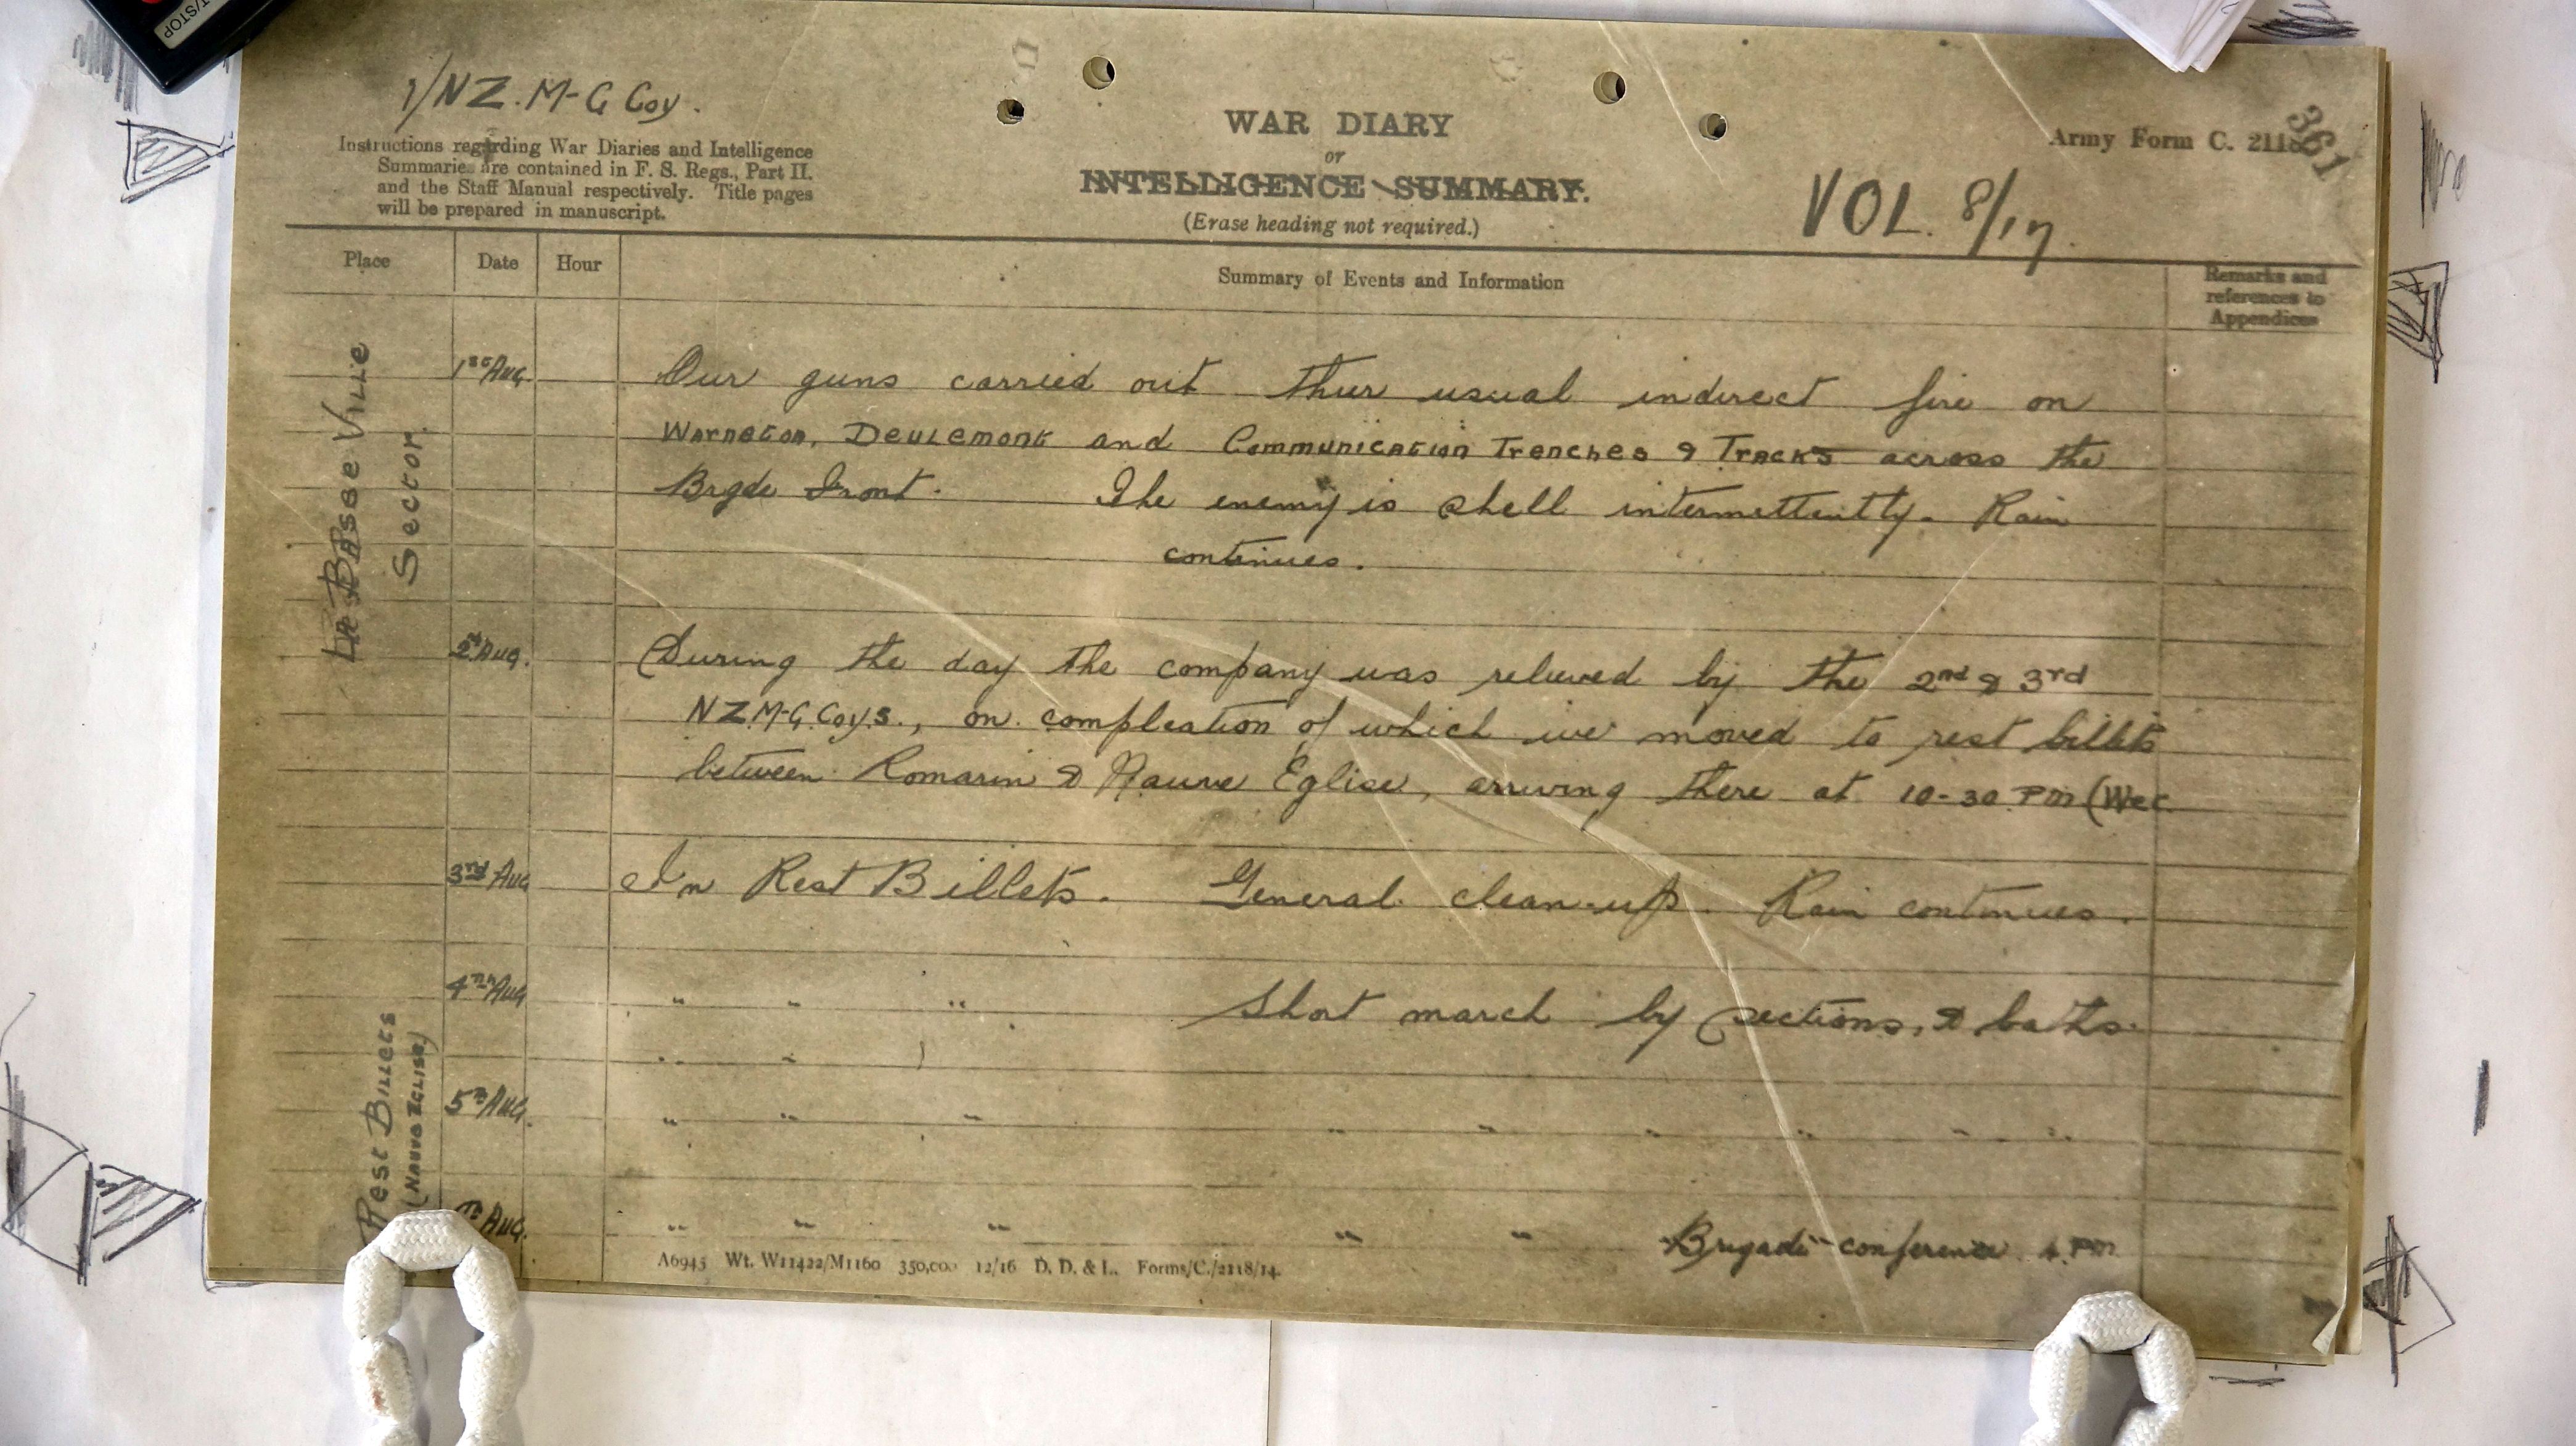 T/STOP
1/NZ. M-G Coy.
Instructions regarding War Diaries and Intelligence
Summaries are contained in F. S. Regs., Part II.
and the Staff Manual respectively. Title pages
will be prepared in manuscript.
WAR DIARY
or
INTELLIGENCE SUMMARY.
(Erase heading not required.)
Army Form C. 2118
361
VOL. 8/17.
Place
Date
Hour
Summary of Events and Information
Remarks and
references to
Appendices
La Basse Ville
Sector.
1st Aug.
Our guns carried out thier usual indirect fire on
Warneton, Deulemont and Communication Trenches & Tracks across the
Brgde Front. The enemy is shell intermittently. Rain
continues.
2nd Aug.
During the day the company was relieved by the 2nd & 3rd
NZ M-G Coys., on completion of which we moved to rest billets
between Romarin & Nauve Eglise, arriving there at 10-30 PM (Wet
3rd Aug
In Rest Billets. General clean-up. Rain continues.
Rest Billets
(Nauve Eglise)
4th Aug
" " " Short march by sections, & baths.
5th Aug.
" " " " " " " " "
th Aug.
" " " " " Brigade conference PM
A6945 Wt. W11422/M1160 350,000 12/16 D. D. & L. Forms/C./2118/14.